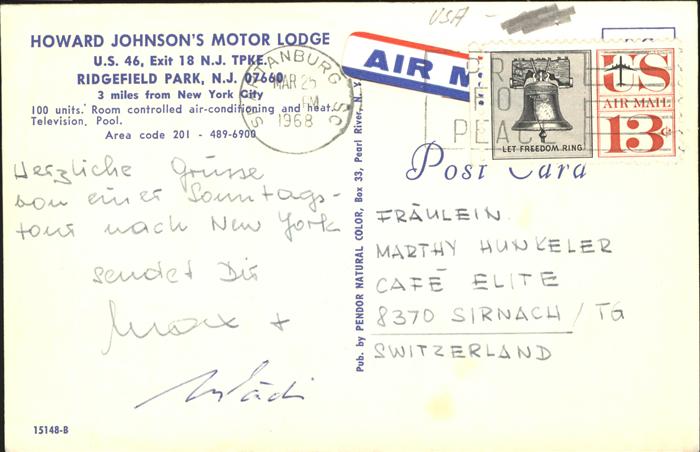 HOWARD JOHNSON'S MOTOR LODGE
U.S. 46, Exit 18 N.J. TPKE.
RIDGEFIELD PARK, N.J. 07660
3 miles from New York City
100 units. Room controlled air-conditioning and heat.
Television, Pool.
Area code 201 - 489-6900
Herzliche Grüsse
von einer Sonntags-
tour nach New York
sendet Dir
Max +
15148-B
Pub. by PENDOR NATURAL COLOR, Box 33, Pearl River, N.Y.
USA -
AIR M
SPARTANBURG SC
MAR 25
PM
1968
PRAY
FOR
PEACE
LET FREEDOM RING
US
AIR MAIL
13¢
Post Card
FRÄULEIN
MARTHY HUNKELER
CAFÉ ELITE
8370 SIRNACH / TG
SWITZERLAND